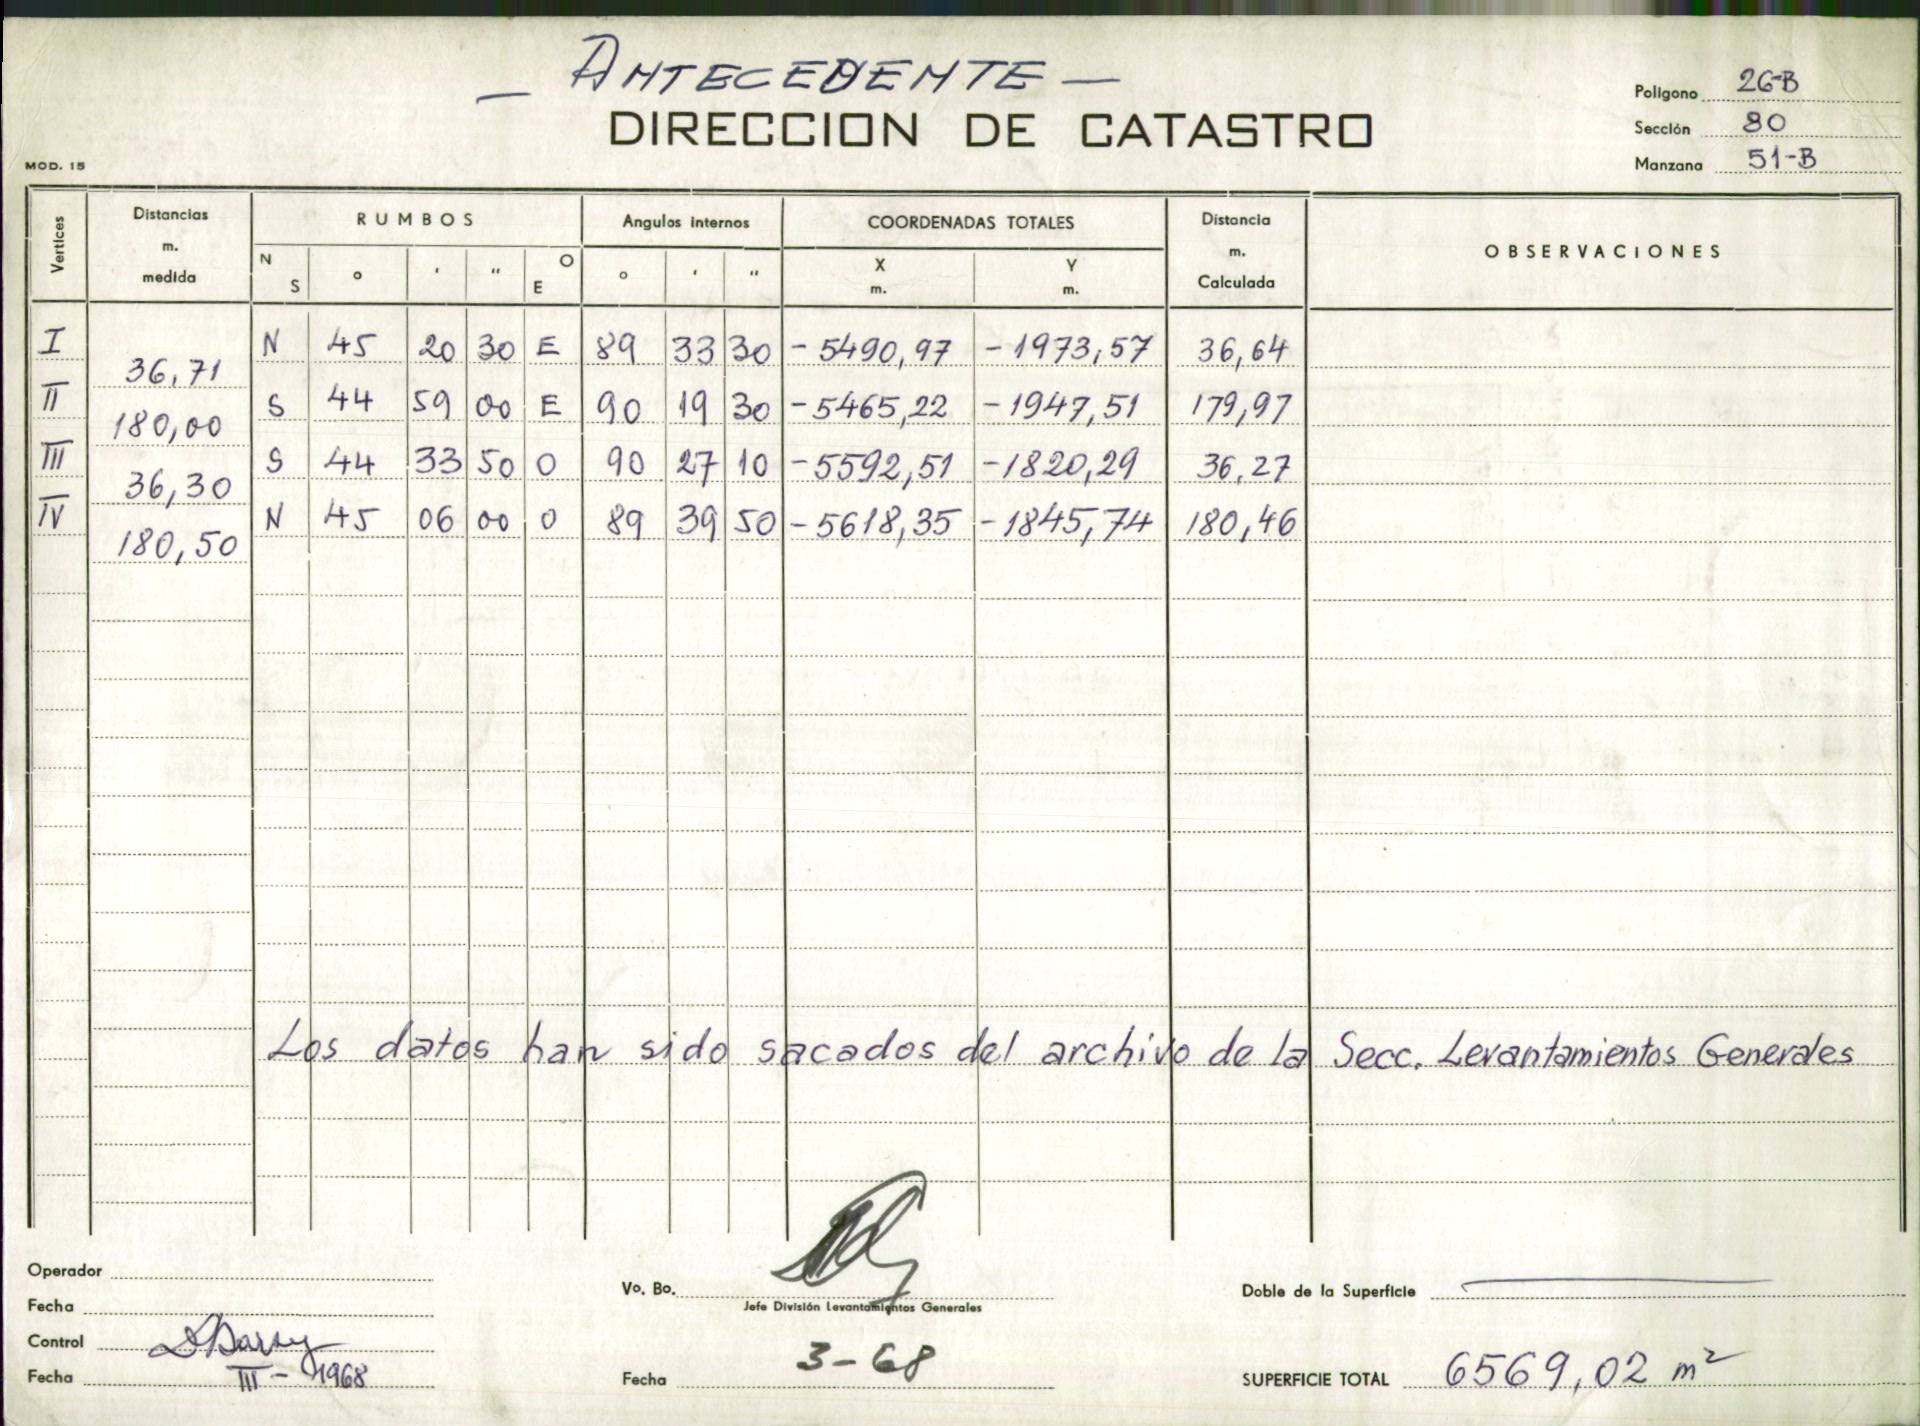 — ANTECEDENTE —
DIRECCION DE CATASTRO
Polígono 26-B
Sección 80
Manzana 51-B
MOD. 15
Vertices Distancias m. medida RUMBOS Angulos internos COORDENADAS TOTALES Distancia m. Calculada OBSERVACIONES
N S ° ' " O E ° ' " X m. Y m.
I N 45 20 30 E 89 33 30 -5490,97 -1973,57 36,64
36,71
II S 44 59 00 E 90 19 30 -5465,22 -1947,51 179,97
180,00
III S 44 33 50 O 90 27 10 -5592,51 -1820,29 36,27
36,30
IV N 45 06 00 O 89 39 50 -5618,35 -1845,74 180,46
180,50
Los datos han sido sacados del archivo de la Secc. Levantamientos Generales
Operador
Fecha
Control
Fecha III - 1968
Vo. Bo.
Jefe División Levantamientos Generales
Fecha 3-68
Doble de la Superficie
SUPERFICIE TOTAL 6569,02 m²